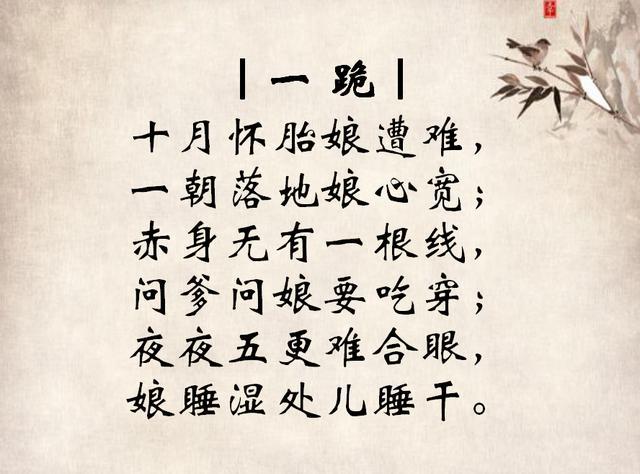 |一跪|
十月怀胎娘遭难，
一朝落地娘心宽；
赤身无有一根线，
问爹问娘要吃穿；
夜夜五更难合眼，
娘睡湿处儿睡干。